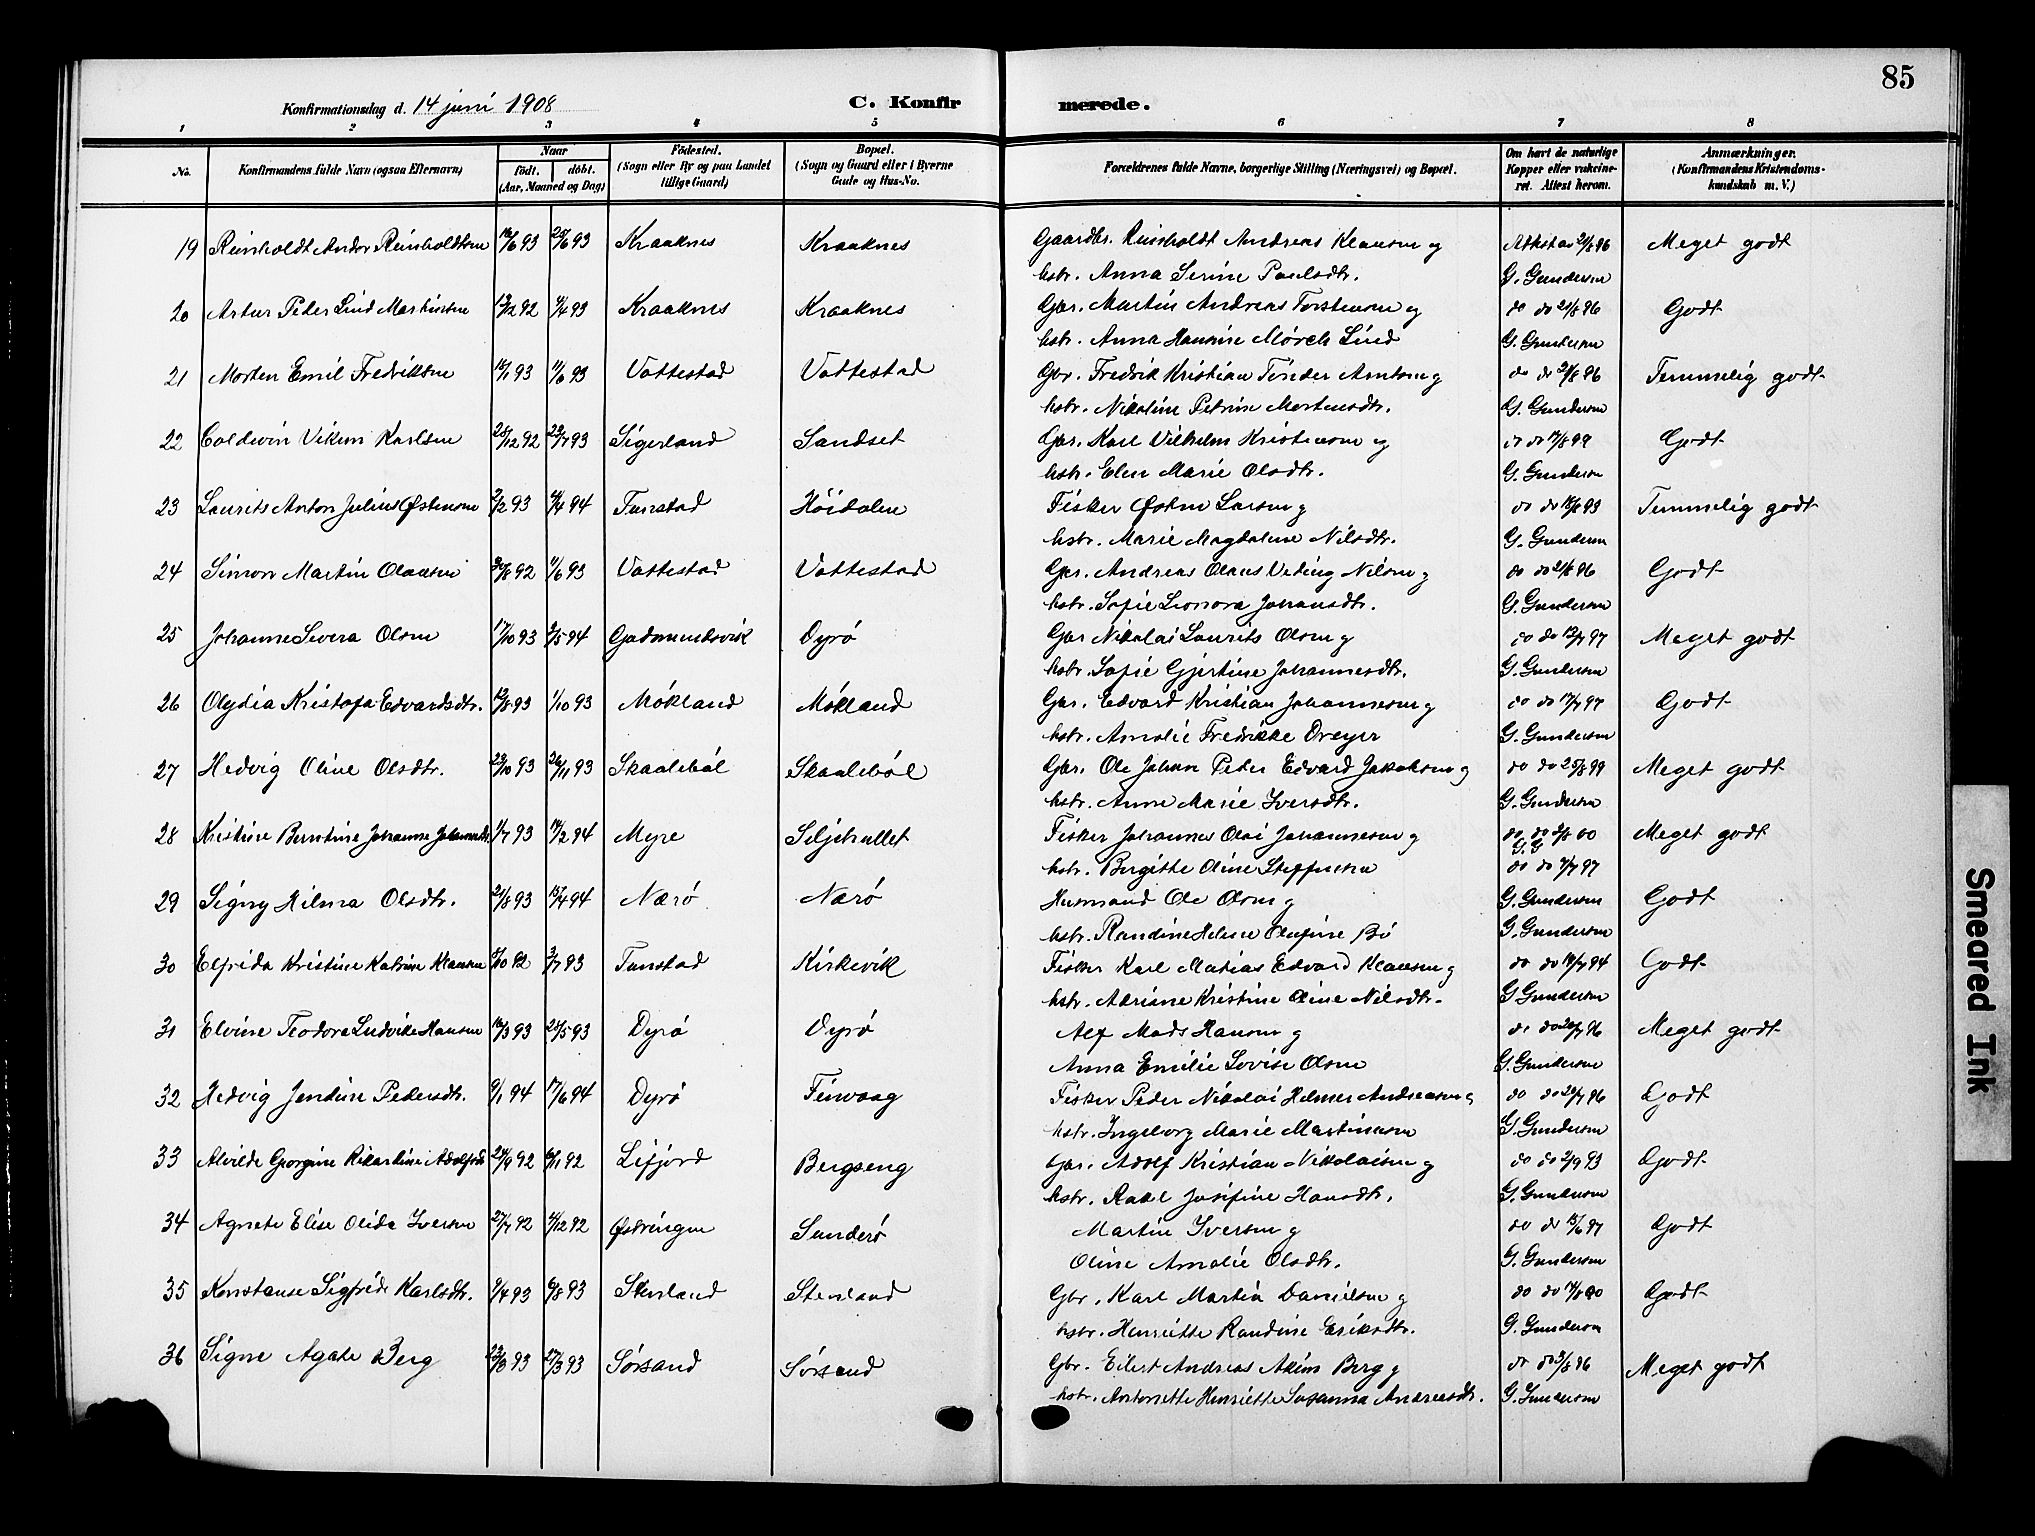 85
Konfirmationsdag d. 14 juni 1908
C. Konfirmerede.
1 2 3 4 5 6 7 8
No. Konfirmandens fulde Navn (ogsaa Efternavn) Naar födt. döbt. (Aar, Maaned og Dag) Födested. (Sogn eller By og paa Landet tillige Gaard) Bopæl. (Sogn og Gaard eller i Byerne Gade og Hus-No. Forældrenes fulde Navne, borgerlige Stilling (Næringsvei) og Bopæl. Om havt de naturlige Kopper eller vakcineret. Attest herom. Anmærkninger. (Konfirmandens Kristendomskundskab m. V.)
19 Reinholdt Andor Reinholdtsen 16/6 93 25/6 93 Kraaknes Kraaknes Gaardbr. Reinholdt Andreas Klausen og Attest av 21/8 96 Meget godt
hstr. Anna Serine Paulsdtr. G. Gundersen
20 Artur Peder Lind Martinsen 13/12 92 4/4 93 Kraaknes Kraaknes Gbr. Martin Andreas Torstensen og do do 21/8 96 Godt
hstr. Anna Hansine Mørch Lind G. Gundersen
21 Morten Emil Fredriksen 16/1 93 11/6 93 Vottestad Vottestad Gbr. Fredrik Kristian Tönder Arntsen og do do 21/8 96 Temmelig godt
hstr. Nikoline Petrine Mortensdtr. G. Gundersen
22 Coldevin Vikum Karlsen 25/12 92 23/7 93 Sigerland Sandset Gbr. Karl Vilhelm Kristensen og do do 17/8 99 Godt
hstr. Elen Marie Olsdtr. G. Gundersen
23 Laurits Anton Julius Østensen 2/12 93 4/4 94 Tunstad Höidalen Fisker Østen Larsen og do do 18/8 93 Temmelig godt
hstr. Marie Magdalene Nilsdtr. G. Gundersen
24 Simon Martin Olausen 30/8 92 11/6 93 Vottestad Vottestad Gbr. Andreas Olaus Veding Nilsen og do do 21/8 96 Godt
hstr. Sofie Leonora Johansdtr. G. Gundersen
25 Johanne Sivera Olsen 17/10 93 3/5 94 Gudmundsvik Dyrø Gbr Nikolai Laurits Olsen og do do 13/7 97 Meget godt
hstr. Sofie Gjertine Johannesdtr. G. Gundersen
26 Olydia Kristofa Edvardsdtr. 12/8 93 1/10 93 Mökland Mökland Gbr. Edvard Kristian Johannesen og do do 17/7 97 Godt
hstr. Amalie Fredrikke Dreyer G. Gundersen
27 Hedvig Oline Olsdtr. 23/10 93 26/11 93 Skaaleböl Skaaleböl Gbr. Ole Johan Peter Edvard Jakobsen og do do 25/8 99 Meget godt
hstr. Anne Marie Iversdtr. G. Gundersen
28 Kristine Berntine Johanne Johannesdtr. 1/7 93 14/2 94 Myre Siljehullet Fisker Johannes Olai Johannesen og do do 3/8 00 Meget godt
G. G.
hstr. Birgitte Oline Steffensen do do 7/7 97
29 Signy Hilma Olsdtr. 21/8 93 15/4 94 Nærö Nærö Husmand Ole Olsen og G. Gundersen Godt
hstr. Randine Helene Olufine Bö G. Gundersen
30 Elfrida Kristine Katrine Klausen 5/10 92 3/7 93 Tunstad Kirkevik Fisker Karl Matias Edvard Klausen og do do 18/7 94 Godt
hstr. Adriane Kristine Oline Nilsdtr. G. Gundersen
31 Elvine Teodora Ludvikke Hansen 16/3 93 25/5 93 Dyrö Dyrö Alf Mads Hansen og do do 20/7 96 Meget godt
Anna Emilie Lovise Olsen G. Gundersen
32 Hedvig Jendine Pedersdtr. 9/1 94 17/6 94 Dyrö Finvaag Fisker Peder Nikolai Helmer Andreasen og do do 20/7 96 Godt
hstr. Ingeborg Marie Martinsen G. Gundersen
33 Alvilde Georgine Rikardine Adolfsdtr 24/9 92 6/11 92 Lifjord Bergseng Gbr. Adolf Kristian Nikolaisen og do do 2/9 93 Godt
hstr. Rakel Josifine Hansdtr. G. Gundersen
34 Agnete Elise Olida Iversen 27/7 92 4/12 92 Østringen Sunderö Martin Iversen og do do 15/6 97 Godt
Oline Amalie Olsdtr. G. Gundersen
35 Konstanse Sigfride Karlsdtr. 9/4 93 6/8 93 Stenland Stenland Gbr. Karl Martin Danielsen og do do 14/8 00 Godt
hstr. Henriette Randine Eriksdtr. G. Gundersen
36 Signe Agate Berg 23/3 93 27/3 93 Sørsand Sörsand Gbr. Eilert Andreas Akim Berg og do do 3/8 96 Meget godt
hstr. Antoniette Henriette Susanna Andreasdtr. G. Gundersen
Smeared Ink